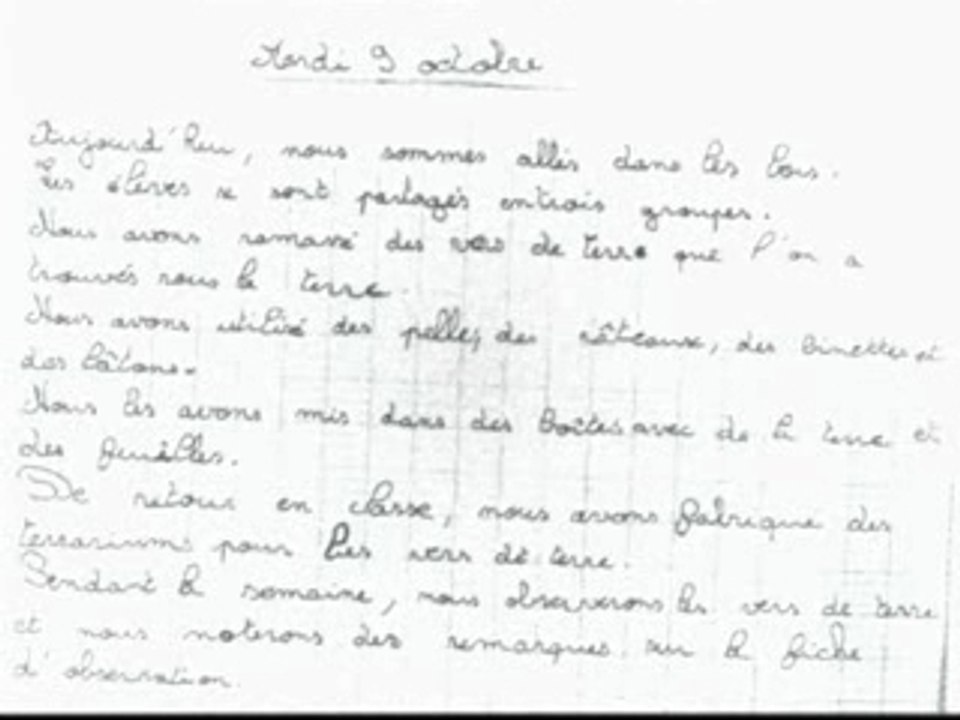 Mardi 9 octobre
Aujourd'hui, nous sommes allés dans les bois.
Les élèves se sont partagés en trois groupes.
Nous avons ramassé des vers de terre que l'on a
trouvés sous la terre.
Nous avons utilisé des pelles, des râteaux, des binettes et
des bâtons.
Nous les avons mis dans des boîtes avec de la terre et
des feuilles.
De retour en classe, nous avons fabriqué des
terrariums pour les vers de terre.
Pendant la semaine, nous observerons les vers de terre
et nous noterons des remarques sur la fiche
d'observation.